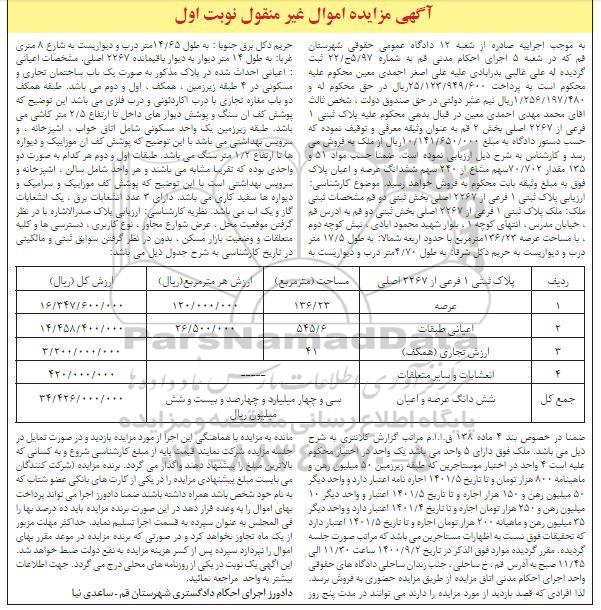 آگهی مزایده اموال غیر منقول نوبت اول
به موجب اجراییه صادره از شعبه ۱۲ دادگاه عمومی حقوقی شهرستان
قم که در شعبه ۵ اجرای احکام مدنی قم به شماره ۵/۹۷ج/۲۲ ثبت
گردیده له علی غالبی بدرآبادی علیه علی اصغر احمدی معین محکوم علیه
محکوم است به پرداخت ۲۵/۱۲۳/۹۴۹/۶۰۰ریال در حق محکوم له و
۱/۲۵۶/۱۹۷/۴۸۰ریال نیم عشر دولتی در حق صندوق دولت ، شخص ثالث
اقای محمد مهدی احمدی معین در قبال بدهی محکوم علیه پلاک ثبتی ۱
فرعی از ۲۲۶۷ اصلی بخش ۲ قم به عنوان وثیقه معرفی و توقیف نموده که
حسب دستور دادگاه به مبلغ ۱۰/۱۴۱/۶۵۰/۰۰۰ریال از ملک به فروش می
رسد و کارشناس به شرح ذیل ارزیابی نموده است. ضمنا حسب مواد ۵۱ و
۱۳۵ مقدار ۷۰/۷۰۲سهم مشاع از ۲۴۰ سهم ششدانگ عرصه و اعیان پلاک
فوق به مبلغ وثیقه بابت محکوم به فروش خواهد رسید. موضوع کارشناسی:
ارزیابی پلاک ثبتی ۱ فرعی از ۲۲۶۷ اصلی بخش ثبتی دو قم مشخصات ثبتی
ملک: ملک پلاک ثبتی ۱ فرعی از ۲۲۶۷ اصلی بخش ثبتی دو قم به آدرس قم
، خیابان مدرس ، انتهای کوچه ۱ ، بلوار شهید محمود ابادی ، نبش کوچه دوم
، با مساحت عرصه ۱۳۶/۲۳مترمربع با حدود اربعه شمالا: به طول ۱۷/۵ متر
درب و دیواریست به حریم دکل شرقا: به طول ۴/۷۰متر درب و دیواریست به
حریم دکل برق جنوبا : به طول ۱۴/۶۵متر درب و دیواریست به شارع ۸ متری
غربا: به طول ۱۴ متر دیوار به دیوار باقیمانده ۲۲۶۷ اصلی. مشخصات اعیانی
: اعیانی احداث شده در پلاک مذکور به صورت یک باب ساختمان تجاری و
مسکونی در ۴ طبقه زیرزمین ، همکف ، اول و دوم می باشد. طبقه همکف
دو باب مغازه تجاری با درب اکاردئونی و درب فلزی می باشد این توضیح که
پوشش کف ان سنگ و پوشش دیوار های داخل تا ارتفاع ۲/۵ متر کاشی می
باشد. طبقه زیرزمین یک واحد مسکونی شامل اتاق خواب ، اشپزخانه ، و
سرویس بهداشتی می باشد با این توضیح که پوشش کف ان موزاییک و دیواره
ها تا ارتفاع ۱/۲ متر سنگ می باشد. طبقات اول و دوم هر کدام به صورت دو
واحدی بوده که تقریبا مشابه می باشند و هر واحد شامل سالن ، اشپزخانه و
سرویس بهداشتی است با این توضیح که پوشش کف موزاییک و سرامیک و
دیواره ها سفید کاری می باشد. دارای ۳ عدد انشعابات برق ، یک انشعابات
گاز و یک اب می باشد. نظریه کارشناسی: ارزیابی پلاک صدرالاشاره با در نظر
گرفتن موقعیت محل ، عرض شوارع مجاور ، نوع کاربری ، دسترسی ها و کلیه
متعلقات و وضعیت بازار مسکن ، بدون در نظر گرفتن سوابق ثبتی و مالکیتی
در تاریخ کارشناسی به شرح جدول ذیل می باشد:
ردیف پلاک ثبتی ۱ فرعی از ۲۲۶۷ اصلی مساحت (مترمربع) ارزش هر مترمربع(ریال) ارزش کل (ریال)
۱ عرصه ۱۳۶/۲۳ ۱۲۰/۰۰۰/۰۰۰ ۱۶/۳۴۷/۶۰۰/۰۰۰
۲ اعیانی طبقات ۵۴۵/۶ ۲۶/۵۰۰/۰۰۰ ۱۴/۴۵۸/۴۰۰/۰۰۰
۳ ارزش تجاری (همکف) ۴۱ ۳/۲۰۰/۰۰۰/۰۰۰
۴ انشعابات و سایر متعلقات ----- ۴۲۰/۰۰۰/۰۰۰
جمع کل شش دانگ عرصه و اعیان سی و چهار میلیارد و چهارصد و بیست و شش میلیون ریال ۳۴/۴۲۶/۰۰۰/۰۰۰
ضمنا در خصوص بند ۴ ماده ۱۳۸ ق.ا.ا.م مراتب گزارش کلانتری به شرح
ذیل می باشد. ملک فوق دارای ۵ واحد می باشد یک واحد در اختیار محکوم
علیه است ۴ واحد در اختیار موستاجرین که طبقه زیرزمین ۵۰ میلیون رهن و
ماهینامه ۸۰۰ هزار تومان و تا تاریخ ۱۴۰۱/۵ اجاره نامه اعتبار دارد و واحد دیگر
۵۰ میلیون رهن و ۱۵۰ هزار اجاره و تا تاریخ ۱۴۰۱/۵ اعتبار و واحد دیگر ۱۰
میلیون رهن و ۲۵۰ هزار تومان اجاره و تا تاریخ ۱۴۰۱/۴ اعتبار دارد و واحد دیگر
۳۵ میلیون رهن و ماهیانه ۲۰۰ هزار تومان اجاره و تا ۱۴۰۱/۵ اعتبار دارد
که تحقیقات فوق نسبت به اظهارات مستاجرین می باشد که مراتب صورت جلسه
گردیده. مقرر گردیده موارد فوق الذکر در تاریخ ۱۴۰۰/۹/۲ ساعت ۱۱/۳۰ الی
۱۱/۴۵ صبح به آدرس قم ، خ ساحلی ، جنب زندان ساحلی دادگاه های حقوقی
واحد اجرای احکام مدنی اتاق مزایده از طریق مزایده حضوری به فروش برسد.
لذا افرادی که قصد بازدید از مورد مزایده را دارند می توانند در مدت پنج روز
مانده به مزایده با هماهنگی این اجرا از مورد مزایده بازدید و در صورت تمایل در
جلسه مزایده شرکت نمایند قیمت پایه از مبلغ کارشناسی شروع و به کسانی که
بالاترین مبلغ را پیشنهاد دهند واگذار می گردد. برنده مزایده (شرکت کنندگان
می بایست مبلغ پیشنهادی مزایده را در یکی از کارت های بانکی عضو شتاب که
به نام خود شخص باشد همراه داشته باشند ضمنا دادورز اجرا می تواند پرداخت
بهای اموال را به وعده قرار دهد در این صورت برنده مزایده باید ده درصد بها را
فی المجلس به عنوان سپرده به قسمت اجرا تسلیم نماید. حداکثر مهلت مزبور
از یک ماه تجاوز نخواهد کرد و در صورتی که برنده مزایده در موعد مقرر بهای
اموال را نپردازد سپرده پس از کسر هزینه مزایده به نفع دولت ضبط خواهد شد.
این اگهی یک نوبت در یکی از روزنامه های محلی درج می گردد. جهت اطلاعات
بیشتر به واحد مراجعه نمائید.
دادورز اجرای احکام دادگستری شهرستان قم - ساعدی نیا
ParsNamadData